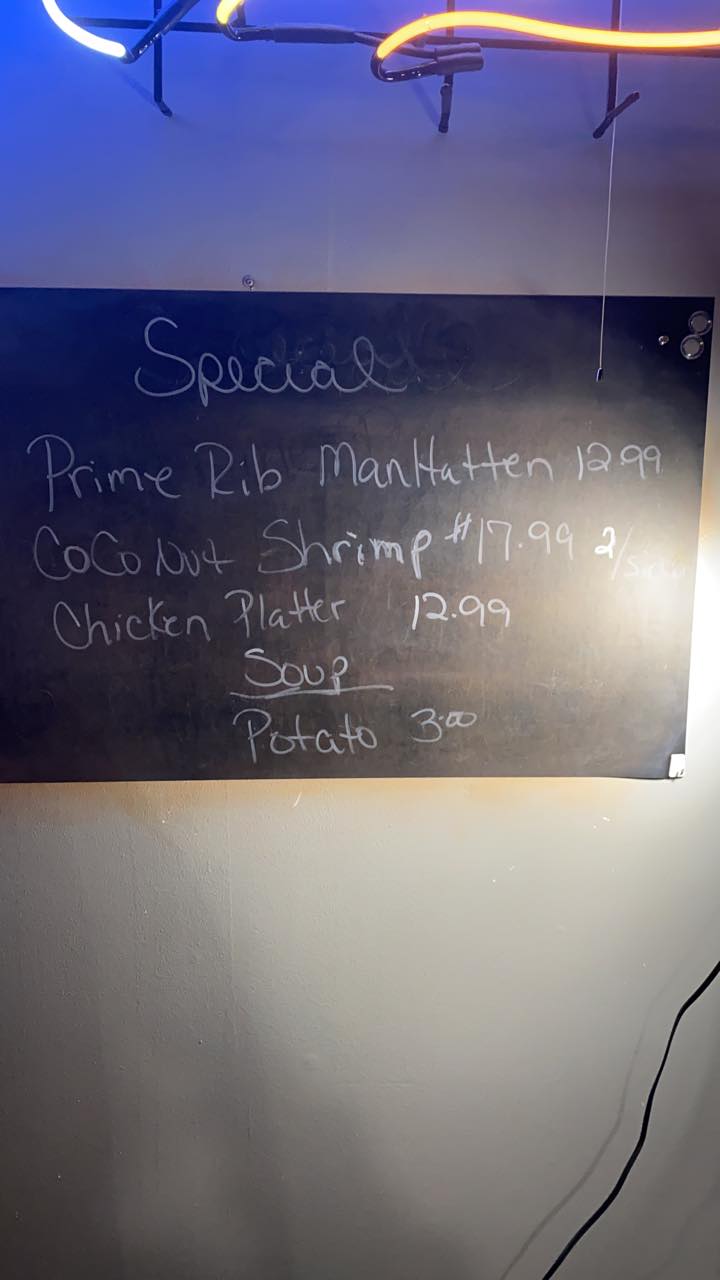 Special
Prime Rib ManHatten 12.99
CoCoNut Shrimp #17.99 2/sides
Chicken Platter 12.99
Soup
Potato 3.00